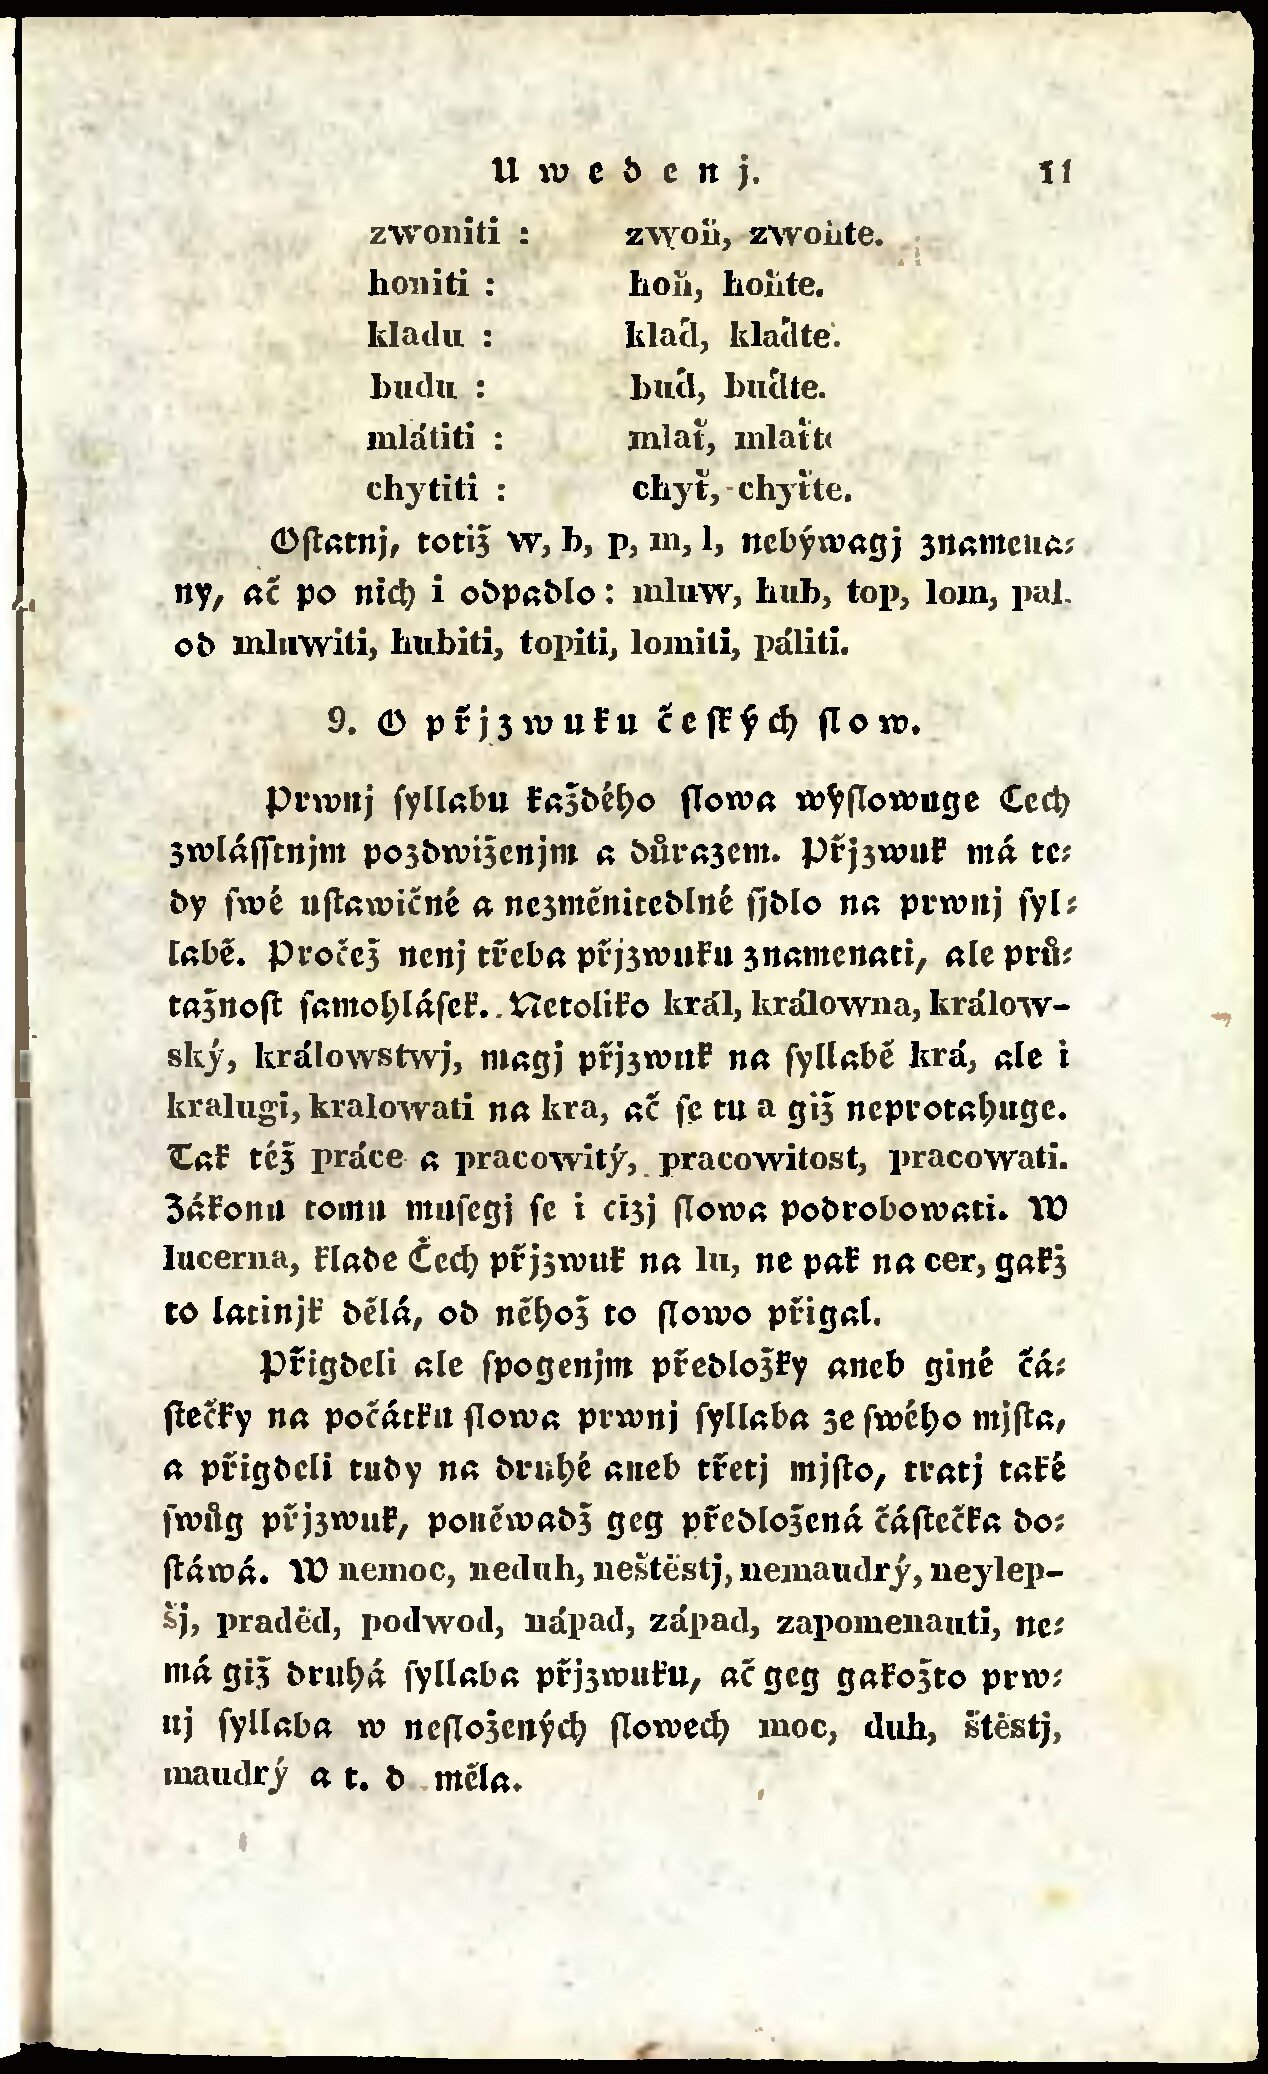 Uwedenj. 11
zwoniti : zwoň, zwoňte.
honiti : hoň, hoňte.
kladu : klaď, klaďte.
budu : buď, buďte.
mlátiti : mlať, mlaťte
chytiti : chyť, chyťte.
Oſtatnj, totiž w, b, p, m, l, nebýwagj znamena⸗
ny, ač po nich i odpadlo: mluw, hub, top, lom, pal.
od mluwiti, hubiti, topiti, lomiti, páliti.
9. O přjzwuku českých ſlow.
Prwnj ſyllabu každého ſlowa wyſlowuge Čech
zwláſſtnjm pozdwiženjm a důrazem. Přjzwuk má te⸗
dy ſwé uſtawičné a nezměnitedlné ſjdlo na prwnj ſyl⸗
labě. Pročež nenj třeba přjzwuku znamenati, ale prů⸗
tažnoſt ſamohláſek. Netoliko král, králowna, králow-
ský, králowstwj, magj přjzwuk na ſyllabě krá, ale i
kralugi, kralowati na kra, ač ſe tu a giž neprotahuge.
Tak též práce a pracowitý, pracowitost, pracowati.
Zákonu tomu muſegj ſe i cizj ſlowa podrobowati. W
lucerna, klade Čech přjzwuk na lu, ne pak na cer, gakž
to latinjk dělá, od něhož to ſlowo přigal.
Přigdeli ale ſpogenjm předložky aneb giné čá⸗
ſtečky na počátku ſlowa prwnj ſyllaba ze ſwého mjſta,
a přigdeli tudy na druhé aneb třetj mjſto, tratj také
ſwůg přjzwuk, poněwadž geg předložená čáſtečka do⸗
ſtáwá. W nemoc, neduh, neštěstj, nemaudrý, neylep-
šj, praděd, podwod, nápad, západ, zapomenauti, ne⸗
má giž druhá ſyllaba přjzwuku, ač geg gakožto prw⸗
nj ſyllaba w neſložených ſlowech moc, duh, štěstj,
maudrý a t. d měla.